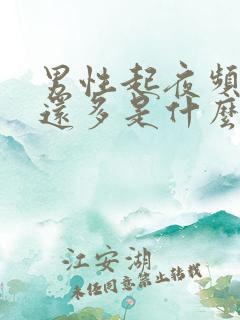 男性起夜頻
還多是什麼
江安湖
未經同意禁止轉載